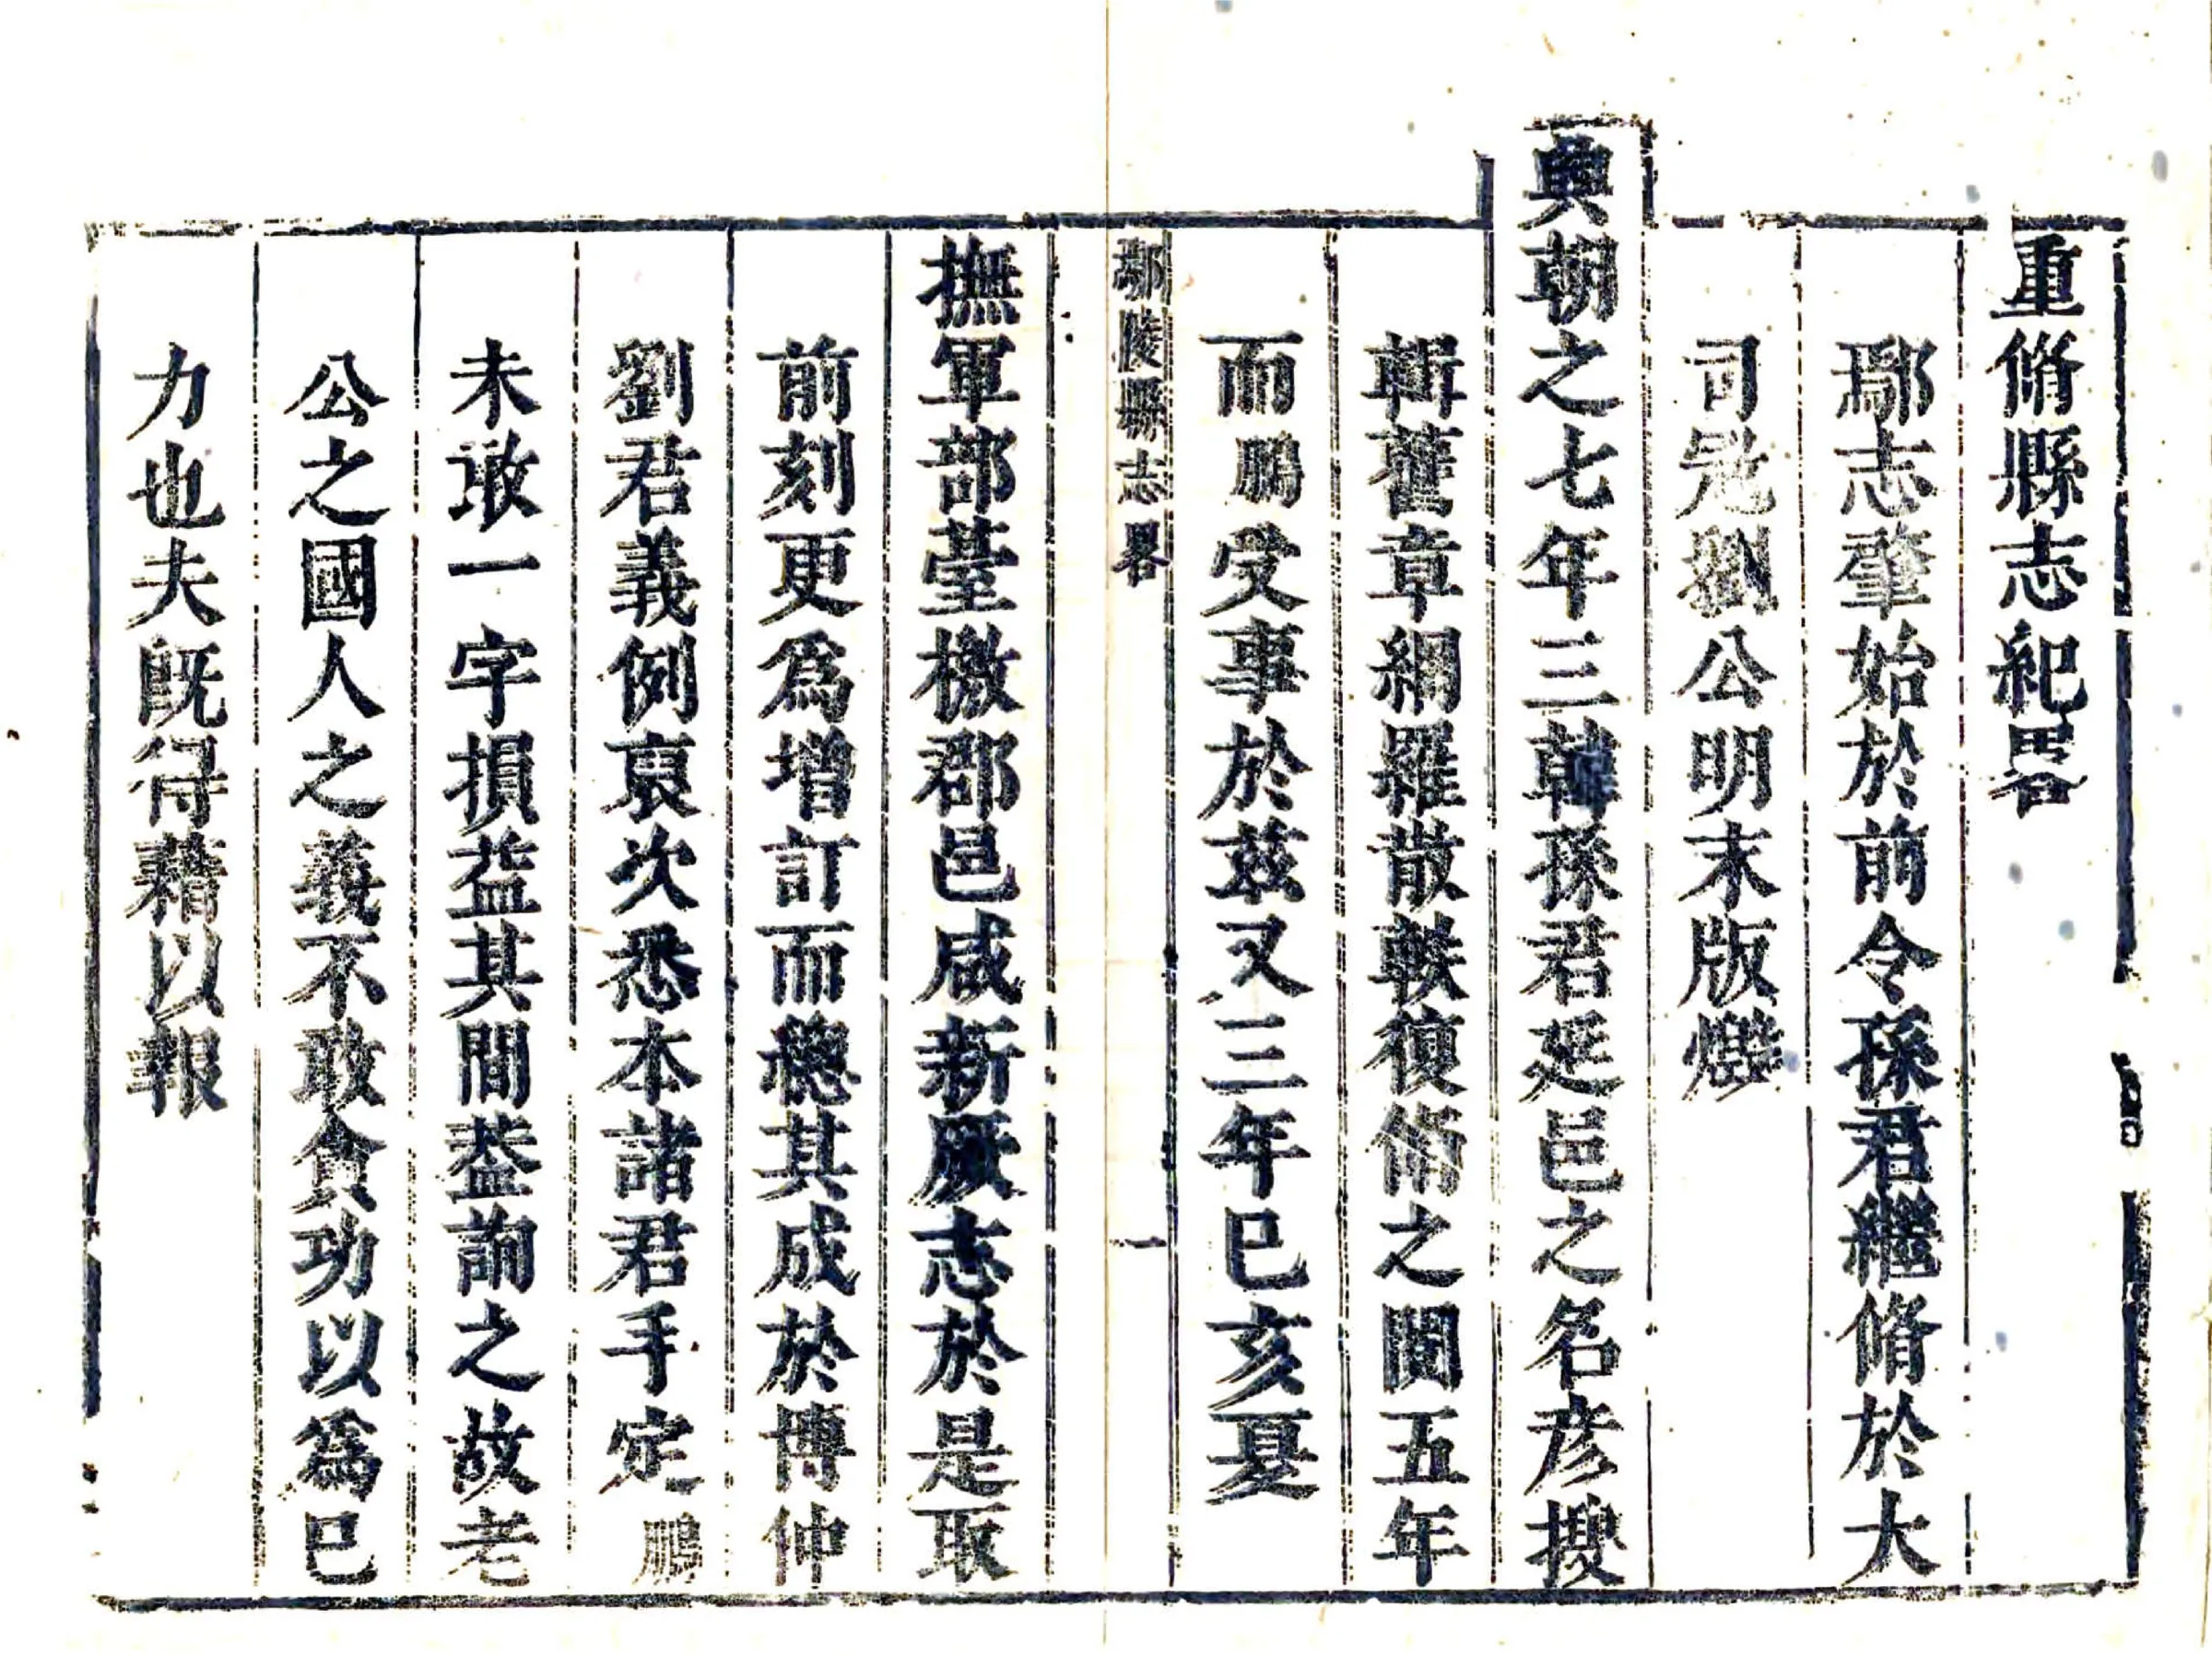 重脩縣志紀畧
鄢志肇始於前令孫君繼脩於大
司寇劉公明末版燬
興朝之七年三韓孫君延邑之名彦搜
輯舊章網羅散軼復脩之閱五年
而鵬受事於茲又三年巳亥夏
鄢陵縣志畧 一
撫軍部臺檄郡邑咸新厥志於是取
前刻更爲增訂而總其成於博仲
劉君義例裒次悉本諸君手定鵬
未敢一字損益其間葢詢之故老
公之國人之義不敢貪功以爲巳
力也夫旣得藉以報